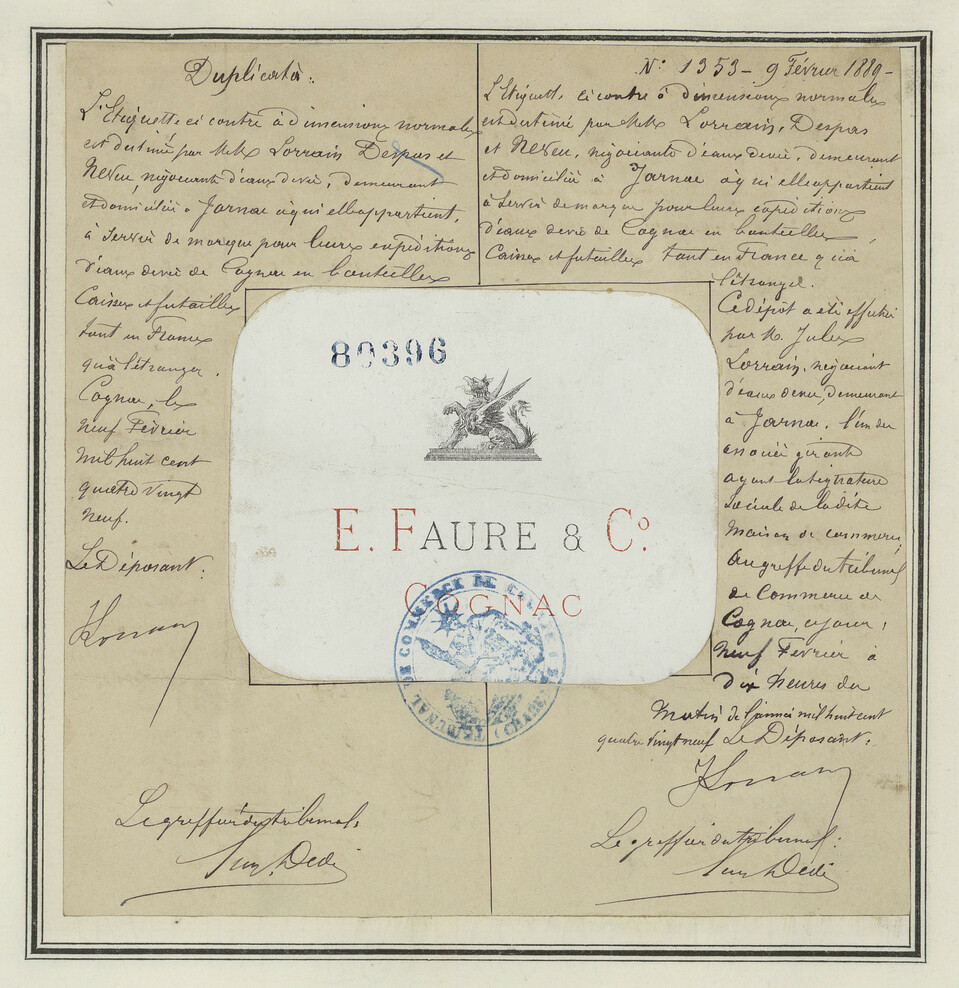 Duplicata :
L'Etiquette ci contre à dimensions normales
est destiné par MM. Lorrain Despas et
Neveu, négociants d'eaux de vie, demeurant
et domiciliés à Jarnac à qui elle appartient,
à Servir de marque pour leurs expéditions
d'eaux de vie de Cognac en bouteilles
Caisses et futailles
tant en France
qu'à l'étranger.
Cognac, le
neuf Février
mil huit cent
quatre vingt
neuf.
Le Déposant :
JLorrain
Le greffier du tribunal :
N° 1353 - 9 Février 1889 -
L'Etiquette ci contre à dimensions normales
est destiné par MM. Lorrain, Despas
et Neveu, négociants d'eaux de vie, demeurant
et domiciliés à Jarnac à qui elle appartient
à Servir de marque pour leurs expéditions
d'eaux de vie de Cognac en bouteilles,
Caisses et futailles tant en France qu'à
l'étranger.
Ce dépôt a été effectué
par M. Jules
Lorrain, négociant
d'eaux de vie, demeurant
à Jarnac, l'un des
associés gérants
ayant la signature
sociale de la dite
Maison de commerce,
au greffe du tribunal
de Commerce de
Cognac, ce jour,
Neuf Février à
dix heures du
Matin de l'année mil huit cent
quatre vingt neuf Le Déposant :
JLorrain
Le greffier du tribunal :
80396
E. FAURE & Co.
COGNAC
TRIBUNAL DE COMMERCE DE (CHARENTE)